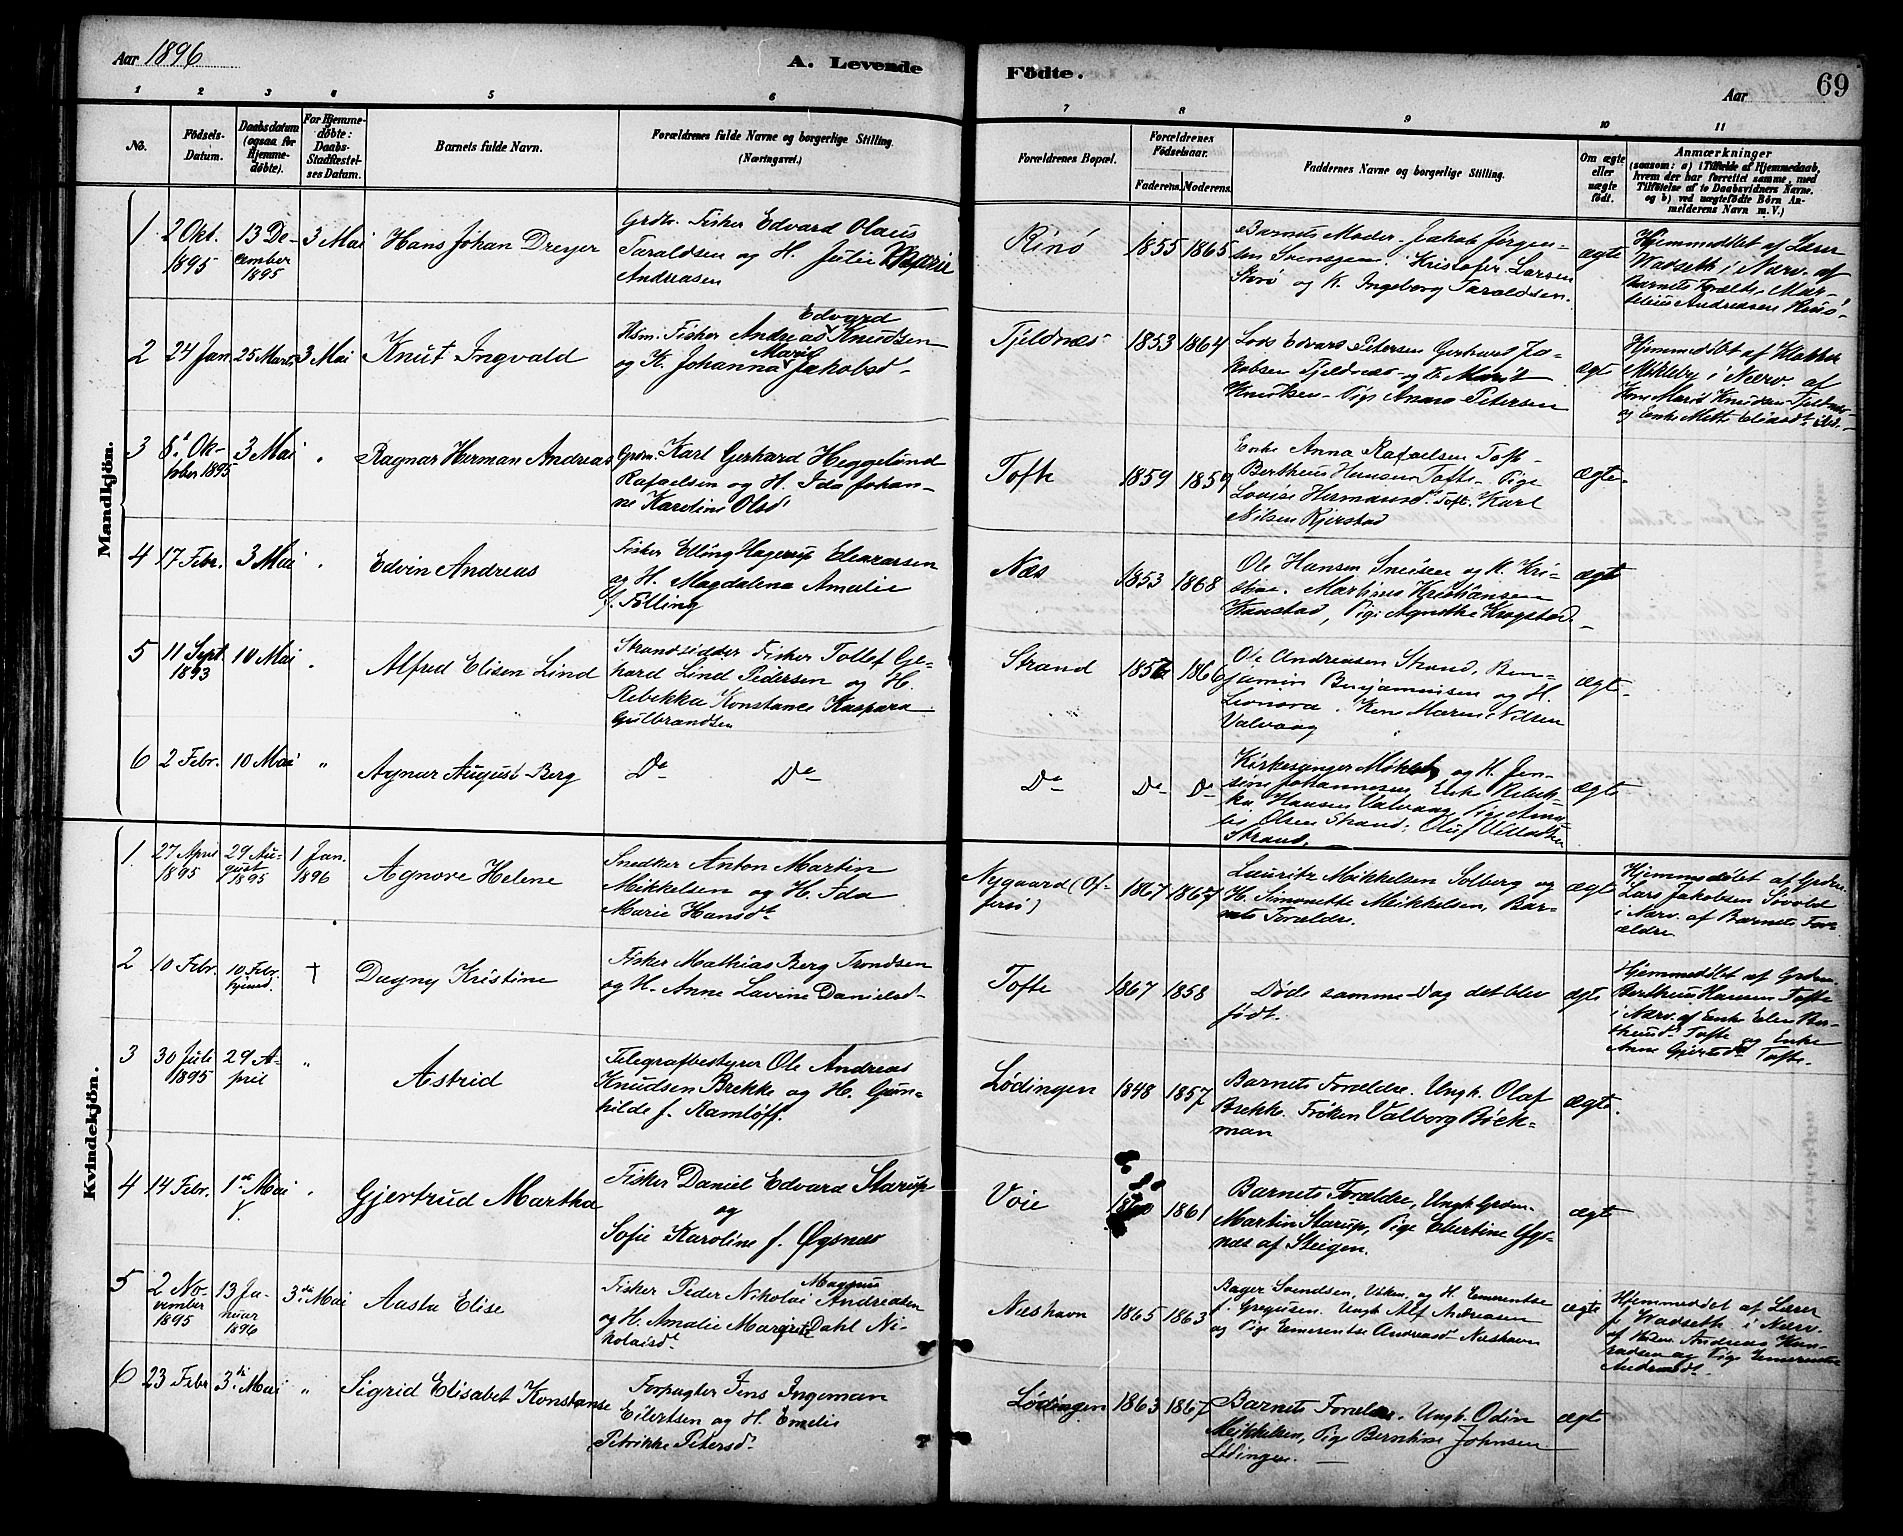 Aar 1896
A. Levende
Födte.
Aar
69
1 2 3 4 5 6 7 8 9 10 11
No.
Födsels-
Datum.
Daabsdatum
(ogsaa for
Hjemme-
døbte).
For Hjemme-
døbte:
Daabs-
Stadfæstel-
ses Datum.
Barnets fulde Navn.
Forældrenes fulde Navne og borgerlige Stilling.
(Næringsvei.)
Forældrenes Bopæl.
Forældrenes
Födselsaar.
Faderens. Moderens.
Faddernes Navne og borgerlige Stilling.
Om ægte
eller
uægte
født.
Anmærkninger
(saasom: a) i Tilfælde af Hjemmedaab,
hvem der har forrettet samme, med
Tilføielse af to Daabsvidners Navne.
og b) ved uægtefödte Börn An-
melderens Navn m. V.)
Mandkjön.
1
2 Okt.
1895
13 De-
cember
1895
3 Mai
Hans Johan Dreyer
Grdbr. Fisker Edvard Olaus
Taraldsen og H. Julie Marie
Andreasen
Rinø
1855
1865
Barnets Moder. Jakob Jørgen-
sen Svensgam. Kristofer Larsen
Storø og K. Ingeborg Taraldsen.
ægte
Hjemmedøbt af Lærer
Wadseth i Nærv. af
Barnets Forældre, Mar-
selius Andreasen Rinø
2
24 Jan
25 Marts
3 Mai
Knut Ingvald
Hsm. Fisker Andreas Edvard Knudsen
og K. Johanna Marie Jakobsd.
Tjeldnæs
1853
1864
Lods Edvard Petersen Gerhard Ja-
kobsen Tjeldnæs og K. Marit
Knudsen - Pige Anna Petersen
ægt
Hjemmedøbt af Klokker
Mikleby i Nærv. af
Kone Marit Knudsen Tjeldnæs
og Enke Mette
3
8de Ok-
tober 1895
3 Mai
"
Ragnar Herman Andreas
Grdm. Karl Gerhard Heggelund
Rafaelsen og H. Ida Johan-
ne Karoline Olsd.
Tofte
1859
1859
Enke Anna Rafaelsen Toft-
Bertheus Hansen Tofte - Pige
Lovise Hermansd. Toft. Karl
Nilsen Kjerstad
ægte
4
17 Febr.
3 Mai
"
Edvin Andreas
Fisker Elling Hagerup Eliassen
og H. Magdalena Amalie
f. Følling
Næs
1853
1868
Ole Hansen og K. Kri-
stine. Martinus Kristiansen
Kanstad, Pige Agnethe Kragstad
ægte
5
11 Sept
1893
10 Mai
"
Alfred Elisen Lind
Strandsidder Fisker Tollef Ge-
hard Lind Pedersen og H.
Rebekka Konstance Kaspara
Gulbrandsen
Strand
1857
1866
Ole Andreasen Strand, Ben-
jamin Benjaminsen og H.
Leonora. Kone Maren Nilsen
Valvaag
ægte
6
2 Febr.
10 Mai
"
Agnar August Berg
Do Do
Do
Do
Do
Kirkesanger Mikleby og H. Jen-
sine Johannesen, Enke Rebek-
ka Hansen Valvaag Pige Ama-
lie Olsen Strand; Oluf Villadsen
Strand.
ægte
Kvindekjön.
1
27 April
1895
29 Au-
gust
1895
1 Jan.
1896
Agnore Helene
Snedker Anton Martin
Mikkelsen og H. Ida
Marie Hansd.
Nygaard (Of-
fersø)
1867
1867
Lauritz Mikkelsen Solberg og
H. Simonette Mikkelsen, Bar-
nets Forældre.
ægt
Hjemmedøbt af Grdm.
Lars Jakobsen
i Nærv. af Barnets For-
ældre
2
10 Febr.
10 Febr.
hjemd.
†
Dagny Kristine
Fisker Mathias Berg Trondsen
og H. Anne Lavine Danielsd.
Tofte
1867
1858
Døde samme Dag det blev
født.
ægte
Hjemmedøbt af Grdm.
Bertheus Hansen Tofte
i Nærv. af Enke Elen Ber-
theusd. Tofte og Enke
Anne Gjertsd. Tofte.
3
30 Juli
1895
29 A-
pril
"
Astrid
Telegrafbestyrer Ole Andreas
Knudsen Brekke og H. Gun-
hilde f. Ramløff.
Lødingen
1848
1857
Barnets Forældre. Ungk. Olaf
Brekke. Frøken Valborg Böck-
man
ægte.
4
14 Febr.
1ste Mai
"
Gjertrud Martha
Fisker Daniel Edvard Starup
og
Sofie Karoline f. Øgsnes
Voie
1861
Barnets Forældre, Ungk. Grdm.
Martin Starup, Pige Ebertine Gys-
næs af Steigen.
ægte
5
2 No-
vember
1895
13 Ja-
nuar
1896
3de Mai
Aasta Elise
Fisker Peder Nikolai Magnus Andreasen
og H. Amalie Margrete Dahl Ni-
kolaisd.
Næshavn
1865
1863
Bager Svendsen, og H. Emerentse
f. Gregusen. Ungk. Alf Andreasen
og Pige Emerentse Andreasd. Næshavn
ægte
Hjemmedøbt af Lærer
Wadseth i Nærv.
af Andreas Kon-
radsen og Pige Emerentse
Andreasd.
6
23 Febr
3de Mai
"
Sigrid Elisabet Konstanse
Forpagter Jens Ingeman
Eilertsen og H. Emelie
Petrikke Petersd.
Lødingen
1863
1867
Barnets Forældre. Ungk. Odin
Mikkelsen, Pige Berntine Johnsen
Lødingen.
ægt